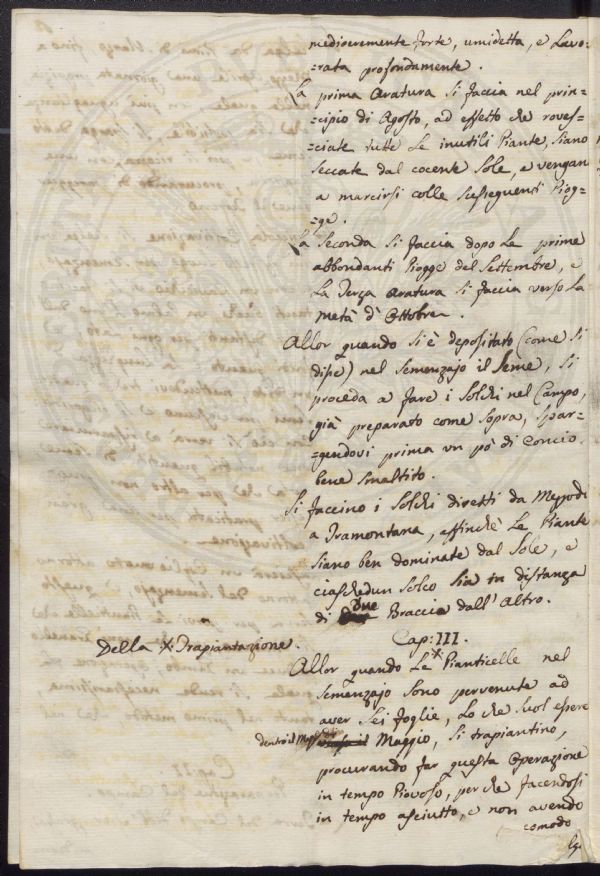 mediocremente forte, umidetta, e Lavo=
=rata profondamente.
La prima Aratura si faccia nel prin=
=cipio di Agosto, ad effetto che roves=
=ciate tutte Le inutili Piante, siano
seccate dal cocente Sole, e vengan
a marcirsi colle susseguenti Piog=
=ge.
La Seconda si faccia dopo Le prime
abbondanti Piogge del Settembre, e
La Terza Aratura si faccia verso La
metà d'Ottobre.
Allor quando si è depositato (come si
disse) nel Semenzajo il Seme, si
proceda a fare i Solchi nel Campo,
già preparato come sopra, spar=
=gendovi prima un pò di Concio
bene smaltito.
Si faccino i Solchi diretti da Mezzodì
a Tramontana, affinchè Le Piante
siano ben dominate dal Sole, e
ciaschedun Solco sia in distanza
di Due Braccia dall'Altro.
Cap: III.
Della X: Trapiantazione.
Allor quando Le X: Pianticelle nel
Semenzajo sono pervenute ad
aver Sei foglie, Lo che suol essere
dentro il Maggio, si trapiantino,
procurando far questa Operazione
in tempo Piovoso, perchè facendosi
in tempo asciutto, e non avendo
comodo